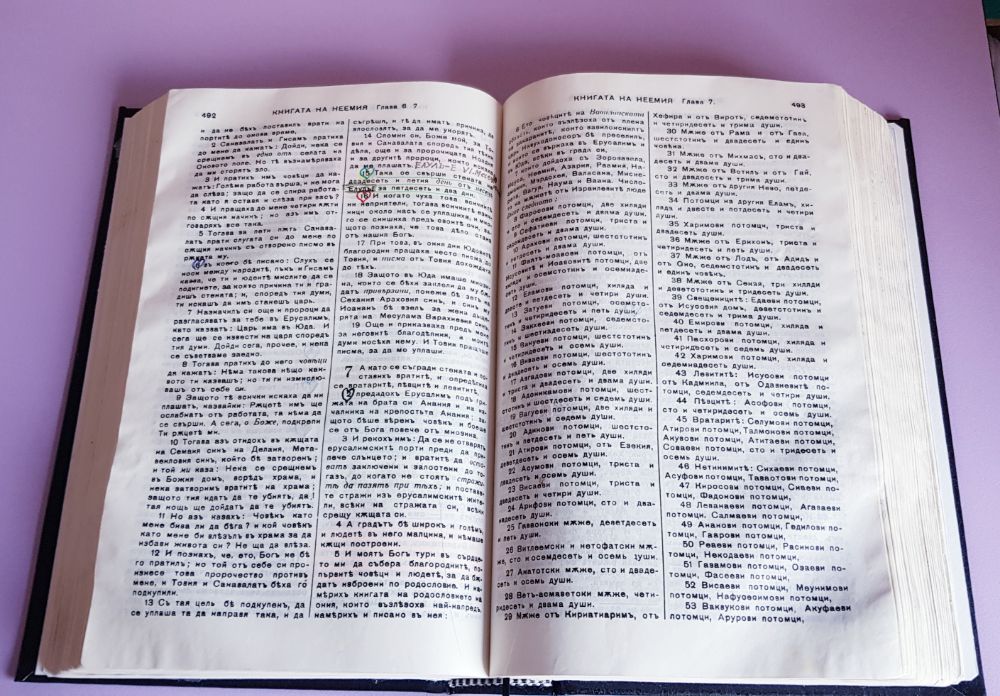 492
КНИГАТА НА НЕЕМИЯ Глава 6 7
и да не бѣхъ поставилъ врати на
портитѣ до онова време,
2 Санавалатъ и Гисамъ пратиха
до мене да кажатъ: Дойди, нека се
срещнемъ въ едно отъ селата на
Оновото поле. Но тѣ възнамѣряваха
да ми сторятъ зло.
3 И пратихъ имъ човѣци да ка-
жатъ: Голѣма работа върша, и не мога
да слѣза; защо да се спира работа-
та като я оставя и слѣза при васъ?
4 И пращаха до мене четири пѫти
по сѫщия начинъ; но азъ имъ от-
говаряхъ все така.
5 Тогава за пети пѫть Санава-
латъ прати слугата си до мене по
сѫщия начинъ съ отворено писмо въ
рѫката му,
6 въ което бѣ писано: Слухъ се
носи между народитѣ, пъкъ и Гисамъ
казва, че ти и юдеитѣ мислите да се
подигнете, за която причина ти и гра-
дишъ стената; и, споредъ тия думи,
ти искашъ да имъ станешъ царь.
7 Назначилъ си още и пророци да
разгласяватъ за тебе въ Ерусалимъ,
като казватъ: Царь има въ Юда. И
сега ще се извести на царя споредъ
тия думи. Дойди сега, прочее, и нека
се съветваме заедно.
8 Тогава пратихъ до него човѣци
да кажатъ: Нѣма такова нѣщо как-
вото ти казвашъ; но ти ги измислю-
вашъ отъ себе си.
9 Защото тѣ всички искаха да ни
плашатъ, казвайки: Рѫцетѣ имъ ще
ослабнатъ отъ работата, та нѣма да
се свърши. А сега, о Боже, подкрепи
Ти рѫцетѣ ми.
10 Тогава азъ отидохъ въ кѫщата
на Семаия синъ на Делаия, Мета-
веиловия синъ, който бѣ затворенъ;
и той ми каза: Нека се срещнемъ
въ Божия домъ, всрѣдъ храма, и
нека затворимъ вратитѣ на храма;
защото тия идатъ да те убиятъ, да!
тая нощь ще дойдатъ да те убиятъ.
11 Но азъ казахъ: Човѣкъ като
мене бива ли да бѣга? и кой човѣкъ
като мене би влѣзълъ въ храма за да
избави живота си? Не ща да влѣза.
12 И познахъ, че, ето, Богъ не бѣ
го пратилъ; но той отъ себе си про-
изнесе това пророчество противъ
мене, и Товия и Санавалатъ бѣха го
подкупили.
13 Съ тая цель бѣ подкупенъ, да
се уплаша та да направя така, и да
съгрѣша, и тѣ да иматъ причина да
злословятъ, за да ме укорятъ.
14 Спомни си, Боже мой, за То-
вия и Санавалата споредъ тия тѣхни
дѣла, още и за пророчицата Ноадия
и за другитѣ пророци, които искаха
да ма плашатъ. ЕЛУЛЪ-Е VI МЕСЕЦ
15 Така се свърши стената въ
двадесеть и петия день отъ месецъ
Елулъ, за петдесеть и два дни.
16 И когато чуха това всичките
ни неприятели, тогава всичкитѣ езич-
ници около насъ се уплашиха, и мно-
го се снишиха предъ своитѣ очи, за-
щото познаха, че това дѣло стана
отъ нашия Богъ.
17 При това, въ ония дни Юдовите
благородни пращаха често писма до
Товия, и писма отъ Товия дохождаха
до тѣхъ.
18 Защото въ Юда имаше мно-
зина, които се бѣха заклели да му бѫ-
датъ привързани, понеже бѣ зеть на
Сехания Араховия синъ, и синъ му
Иоананъ бѣ взелъ за жена дъще-
рята на Месулама Варахиевия синъ.
19 Още и приказваха предъ мене
за неговитѣ благодѣяния, а моитѣ
думи носѣха нему. И Товия пращаше
писма, за да ме уплаши.
7 А като се съгради стената и по-
ставихъ вратитѣ, и опредѣлиха
се вратаритѣ, пѣвцитѣ и левититѣ,
2 предадохъ Ерусалимъ подъ грижата
на брата си Анания и на на-
чалника на крепостьта Анания; за-
щото бѣше вѣренъ човѣкъ и боеше
се отъ Бога повече отъ мнозина.
3 И рекохъ имъ: Да се не отварятъ
ерусалимскитѣ порти преди да при-
пече слънцето; и вратитѣ да оста-
ватъ заключени и залостени до то-
газъ, до когато не стоятъ стражи-
тѣ да пазятъ при тѣхъ; и поставете
стражи изъ ерусалимскитѣ жите-
ли, всѣки на стражата си, всѣки
срещу кѫщата си.
4 А градътъ бѣ широкъ и голѣмъ,
и людетѣ въ него малцина, и нѣмаше
кѫщи построени.
5 И моятъ Богъ тури въ сърдце-
то ми да събера благороднитѣ, по-
първитѣ човѣци и людетѣ, за да бѫ-
датъ изброени по родословие. И на-
мѣрихъ книгата на родословието на
ония, които възлѣзоха най-напредъ,
намѣрихъ и писано въ нея:
КНИГАТА НА НЕЕМИЯ Глава 7.
493
6 Ето човѣцитѣ на Вавилонската
8 Фаросови потомци, две хиляди
и сто и седемдесеть и двама души.
9 Сефатиеви потомци, триста и
седемдесеть и двама души.
10 Арахови потомци, шестстотинъ
и петдесеть и двама души.
11 Фаатъ-моавови потомци, отъ
Исусовитѣ и Иоавовитѣ потомци, две
хиляди и осемстотинъ и осемнаде-
сеть души.
12 Еламови потомци, хиляда и
двесте и петдесеть и четири души.
13 Затуеви потомци, осемсто-
тинъ и четиридесеть и петь души.
14 Закхееви потомци, седемсто-
тинъ и шестдесеть души.
15 Вануеви потомци, шестстотинъ
и четиридесеть и осемь души.
16 Виваеви потомци, шестстотинъ
и двадесеть и осемь души.
17 Азгадови потомци, две хиляди
и триста и двадесеть и двама души.
18 Адоникамови потомци, шест-
стотинъ и шестдесеть и седемь души.
19 Вагуеви потомци, две хиляди и
шестдесеть и седемь души.
20 Адинови потомци, шестсто-
тинъ и петдесеть и петь души.
21 Атирови потомци, отъ Езекия,
деветдесеть и осемь души.
22 Асумови потомци, триста и
двадесеть и осемь души.
23 Висаеви потомци, триста и
двадесеть и четири души.
24 Арифови потомци, сто и два-
надесеть души.
25 Гаваонски мѫже, деветдесеть
и петь души.
26 Витлеемски и нетофатски мѫ-
же, сто и осемдесеть и осемь души.
27 Анатотски мѫже, сто и двад-
сеть и осемь души.
28 Ветъ-асмаветски мѫже, чети-
ридесеть и двама души.
29 Мѫже отъ Кириатиаримъ, отъ
Хефира и отъ Виротъ, седемстотинъ
и четиридесеть и трима души.
30 Мѫже отъ Рама и отъ Гава,
шестстотинъ и двадесеть и единъ
човѣкъ.
31 Мѫже отъ Михмасъ, сто и два-
десеть и двама души.
32 Мѫже отъ Ветилъ и отъ Гай,
сто и двадесеть и трима души.
33 Мѫже отъ другия Нево, петде-
сеть и двама души.
34 Потомци на другия Еламъ, хи-
ляда и двесте и петдесеть и четири
души.
35 Харимови потомци, триста и
двадесеть души.
36 Мѫже отъ Ерихонъ, триста и
четиридесеть и петь души.
37 Мѫже отъ Лодъ, отъ Адидъ и
отъ Оно, седемстотинъ и двадесеть
и единъ човѣкъ.
38 Мѫже отъ Сеная, три хиляди
и деветстотинъ и тридесеть души.
39 Свещеницитѣ: Едаеви потомци,
отъ Исусовия домъ, деветстотинъ и
седемдесеть и трима души.
40 Емирови потомци, хиляда и
петдесеть и двама души.
41 Пасхорови потомци, хиляда и
двеста и четиридесеть и седемь души.
42 Харимови потомци, хиляда и
седемнадесеть души.
43 Левититѣ: Исусови потомци
отъ Кадмиила, отъ Одавиевитѣ по-
томци, седемдесеть и четири души.
44 Пѣвцитѣ: Асафови потомци,
сто и четиридесеть и осемь души.
45 Вратаритѣ: Селумови потомци,
Атирови потомци, Талмонови потомци,
Акувови потомци, Атитаеви потомци,
Соваеви потомци, сто и тридесеть и
осемь души.
46 Нетинимитѣ: Сихаеви потомци,
Асуфови потомци, Таваотови потомци,
47 Киросови потомци, Сиаеви по-
томци, Фадонови потомци,
48 Леванаеви потомци, Агаваеви
потомци, Салмаеви потомци,
49 Ананови потомци, Гедилови по-
томци, Гаарови потомци,
50 Реаеви потомци, Расинови по-
томци, Некодаеви потомци,
51 Газамови потомци, Озаеви по-
томци, Фасееви потомци,
52 Висаеви потомци, Меунимови
потомци, Нафусесимови потомци,
53 Ваквукови потомци, Акуфаеви
потомци, Арурови потомци,